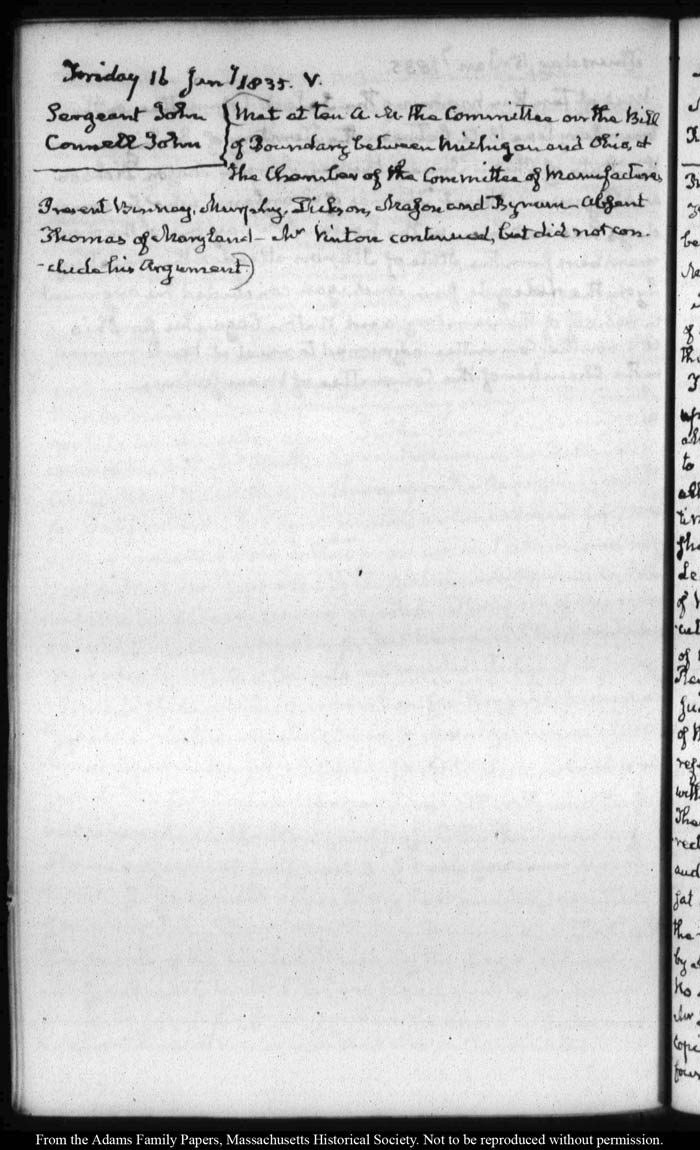 Friday 16 Jany 1835. V.
Sergeant John
Connell John
Met at ten A. M. the Committee on the Bill
of Boundary between Michigan and Ohio, at
the Chamber of the Committee of Manufactures
Present Binney, Murphy, Dickson, Mason and Bynum. Absent
Thomas of Maryland— Mr Vinton continued, but did not con-
-clude his Argument)
From the Adams Family Papers, Massachusetts Historical Society. Not to be reproduced without permission.